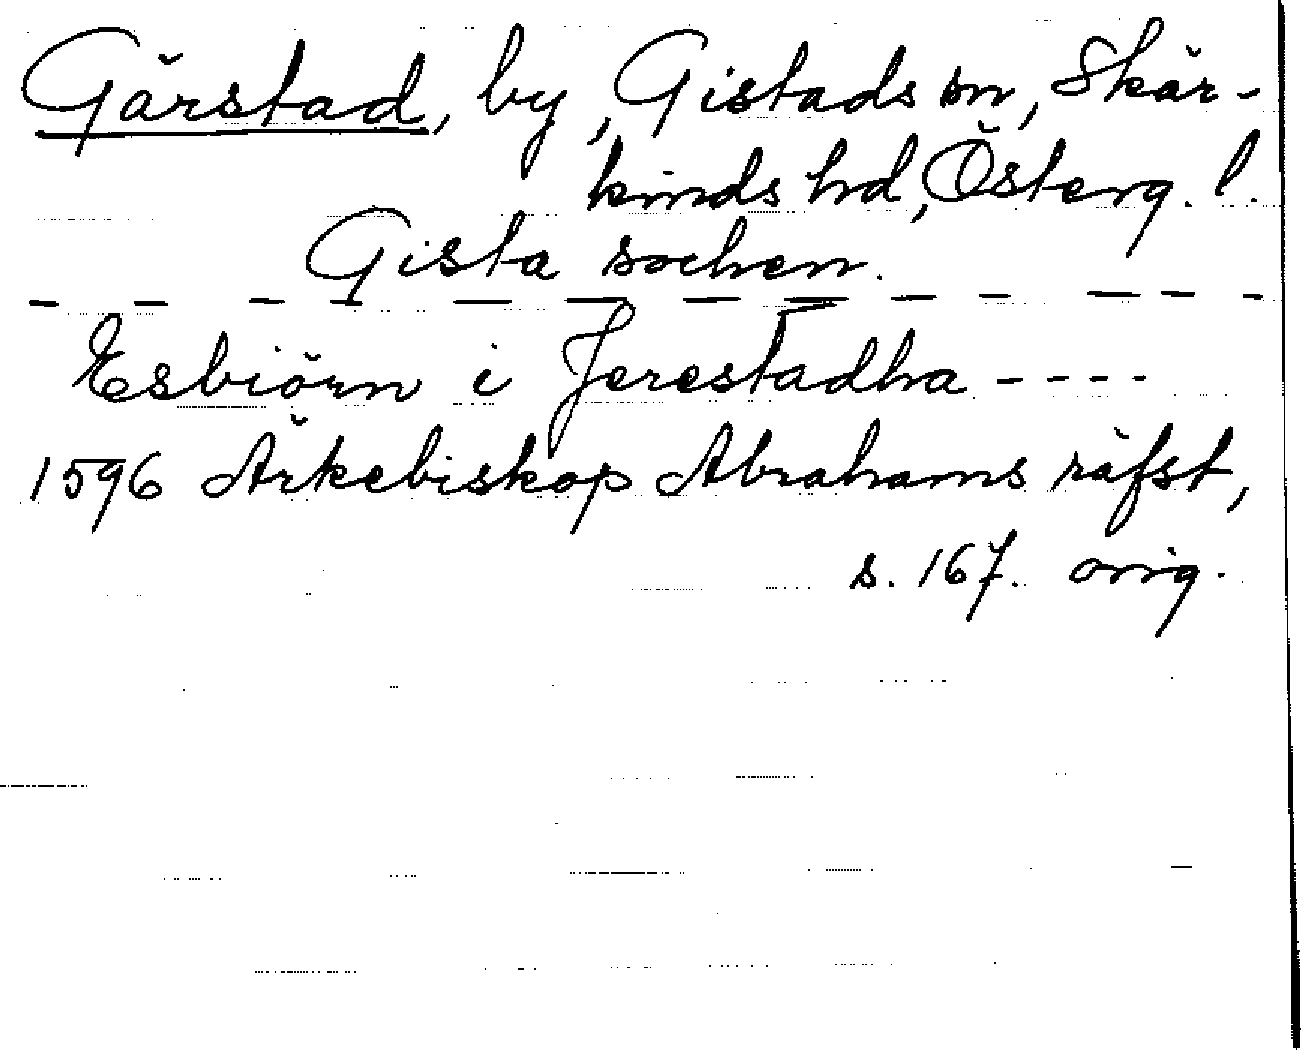 Gärstad, by, Gistads sn, Skär-
kinds hd, Österg. l.
Gista sochen.
- - - - - - - - - - - - -
Esbiörn i Jerestadha ----
1596 Ärkebiskop Abrahams räfst,
s. 167. orig.